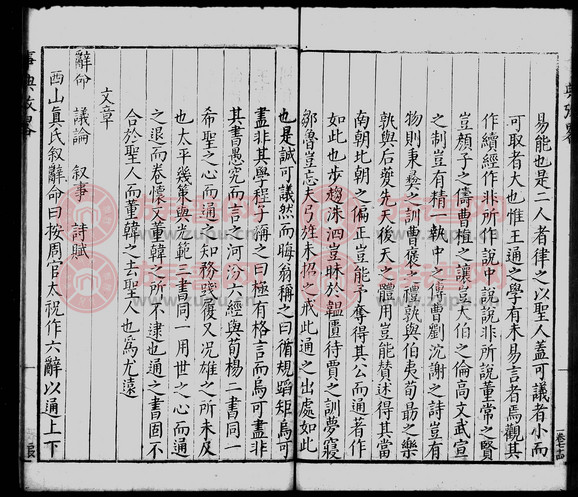 易能也是二人者律之以聖人蓋可議者小而
可取者大也惟王通之學有未易言者焉觀其
作續經作非所作說中說說非所說董常之賢
豈顏子之儔曹植之讓豈大伯之倫高文武宣
之制豈有精一執中之傳曹劉沈謝之詩豈有
物則秉彝之訓曹襃之禮孰與伯夷荀勗之樂
孰與后夔先天後天之體用豈能賛述得其當
南朝北朝之偏正豈能予奪得其公而通著作
如此也步趨洙泗豈昧於韞匵待賈之訓夢寢
鄒魯豈忘夫弓旌未招之戒此通之出處如此
也是誠可議然而晦翁稱之曰循規蹈矩烏可
盡非其學程子稱之曰極有格言而烏可盡非
其書愚究而言之河汾六經與荀楊二書同一
希聖之心而通之知務踐履又况雄之所未及
也太平幾策與允範二書同一用世之心而通
之退而卷懷又董韓之所不逮也通之書固不
合於聖人而董韓之去聖人也爲尤遠
文章
辭命 議論 叙事 詩賦
西山眞氏叙辭命曰按周官太祝作六辭以通上下